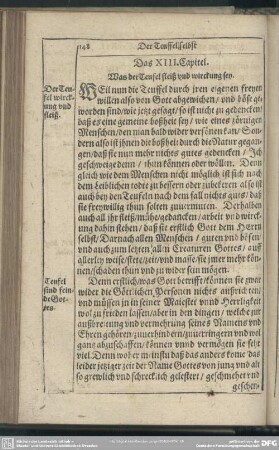 148
Der Teuffel selbst
Das XIII. Capitel.
Was der Teufel fleiß vnd wirckung sey.
Der Teu-
fel wirck-
ung vnd
fleiß.
WEil nun die Teuffel durch jren eigenen freyen
willen also von Gott abgewichen / vnd böse ge-
worden sind / wie jetzt gesagt / so ist nicht zu gedencken /
daß es eine gemeine boßheit sey / wie eines zörnigen
Menschen / den man bald wider versönen kan / Son-
dern also ist jhnen die boßheit durch die Natur gegan-
gen / daß sie nun mehr nichts gutes gedencken / Ich
geschweige denn / thun können oder wöllen. Denn
gleich wie dem Menschen nicht möglich ist sich nach
dem Leiblichen tode zu bessern oder zubekeren / also ist
auch bey den Teufeln nach dem fall nichts guts / daß
sie freywillig thun solten zuvermuten. Derhalben
auch all jhr fleiß / mühe / gedancken / arbeit vnd wirck-
ung dahin stehen / daß sie erstlich Gott dem HErrn
selbst / Darnach allen Menschen / guten vnd bösen /
vnd auch zum letzten allen Creaturen Gottes / auff
allerley weise / stete / zeit / vnd masse / sie jmer mehr
können / schaden thun vnd zu wider sein mögen.
Teufel
sind fein-
de Got-
tes.
Denn erstlich / was Gott betrifft / können sie zwar
wider die Göttlichen Personen nichts außrichten /
vnd müssen jn in seiner Maiestet vnnd Herrligkeit
wol zu frieden lassen / aber in den dingen / welche zur
außbreitung vnd vermehrung seines Namens vnd
Ehren gehören / zuuerhindern / zuuerringern vnd vol
gantz abzuschaffen / können vnnd vermögen sie sehr
viel. Denn wober meinstu daß das anders kome / das
leider jetziger zeit der Name Gottes von jung vnd alt
so grewlich vnd schrecklich gelestert / geschmehet vnd
geschen-